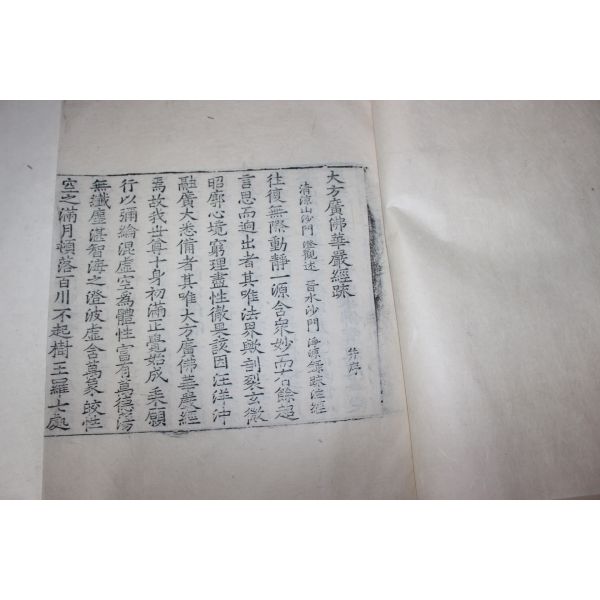 大方廣佛華嚴經疏 并序
清凉山沙門 澄觀述 晋水沙門 淨源錄疏注經
往復無際動靜一源含衆妙而有餘超
言思而逈出者其唯法界歟剖裂玄微
昭廓心境窮理盡性徹果該因汪洋沖
融廣大悉備者其唯大方廣佛華嚴經
焉故我世尊十身初滿正覺始成乘願
行以彌綸混虛空爲體性富有萬德蕩
無纖塵湛智海之澄波虛含萬象皎性
空之滿月頓落百川不起樹王羅七處